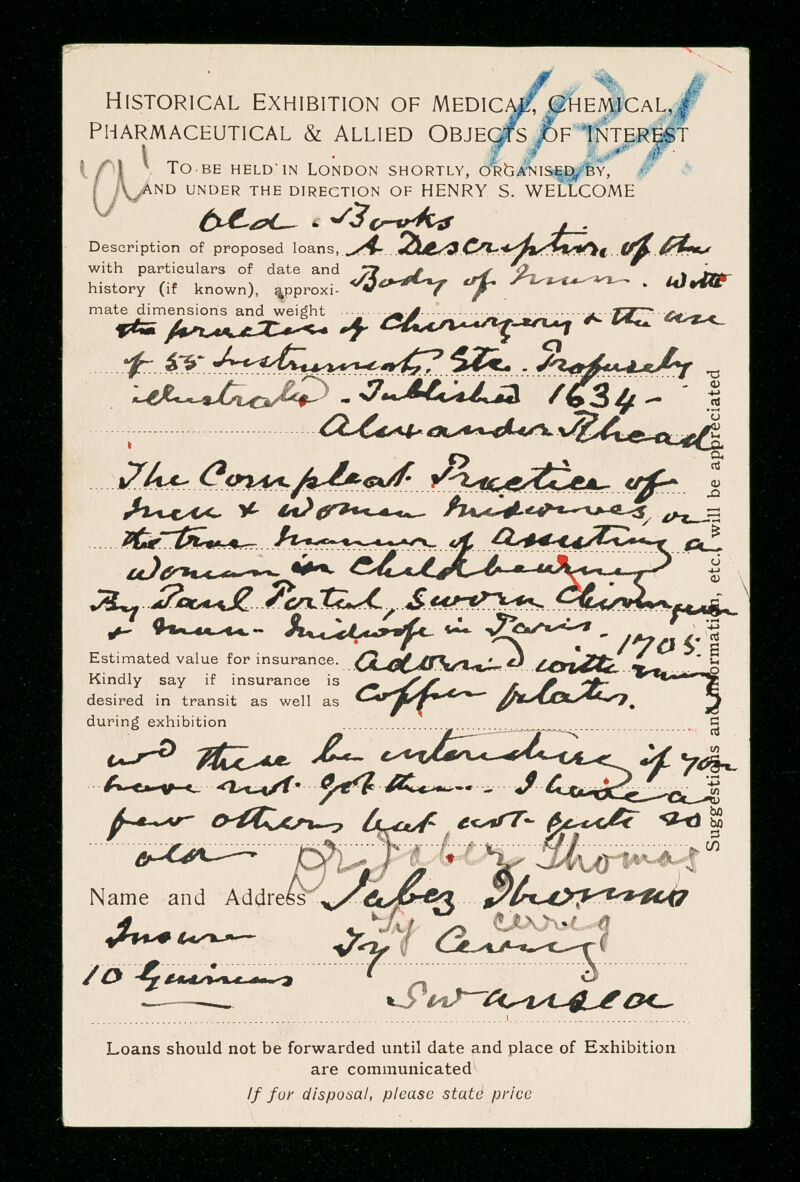 1134.
HISTORICAL EXHIBITION OF MEDICAL, CHEMICAL,
PHARMACEUTICAL & ALLIED OBJECTS OF INTEREST
'a'
TO BE HELD IN LONDON SHORTLY, ORGANISED BY,
AND UNDER THE DIRECTION OF HENRY S. WELLCOME
Old . Books
Description of proposed loans,
with particulars of date and
history (if known), approxi-
mate dimensions and weight
A Description of the
Body of Man . with
the practise of Chirurgery & the use
of 55 Instruments. Etc. Profusely
illustrated . Published 1634 -
Alexander Rhead
The Compleat Practice of
Men & Women Midwives, or
the true manner of assisting a
Woman in Childbearing
By Paul Portal, sworn Chirurgeon
& Man - Midwife in Paris . 1705.
Estimated value for insurance.
Kindly say if insurance is
desired in transit as well as
during exhibition
Adorned with many
copper plates.
wd these be interesting if you
have not got them. I have a
few others but not quite so
old
Dr Jabez Thomas
Name and Address Jabez Thomas
Ty Cerrig
Insure Ty Cerrig
10 Guineas
Swansea
Loans should not be forwarded until date and place of Exhibition
are communicated
If for disposal, please state price
Suggestions and information, etc., will be appreciated